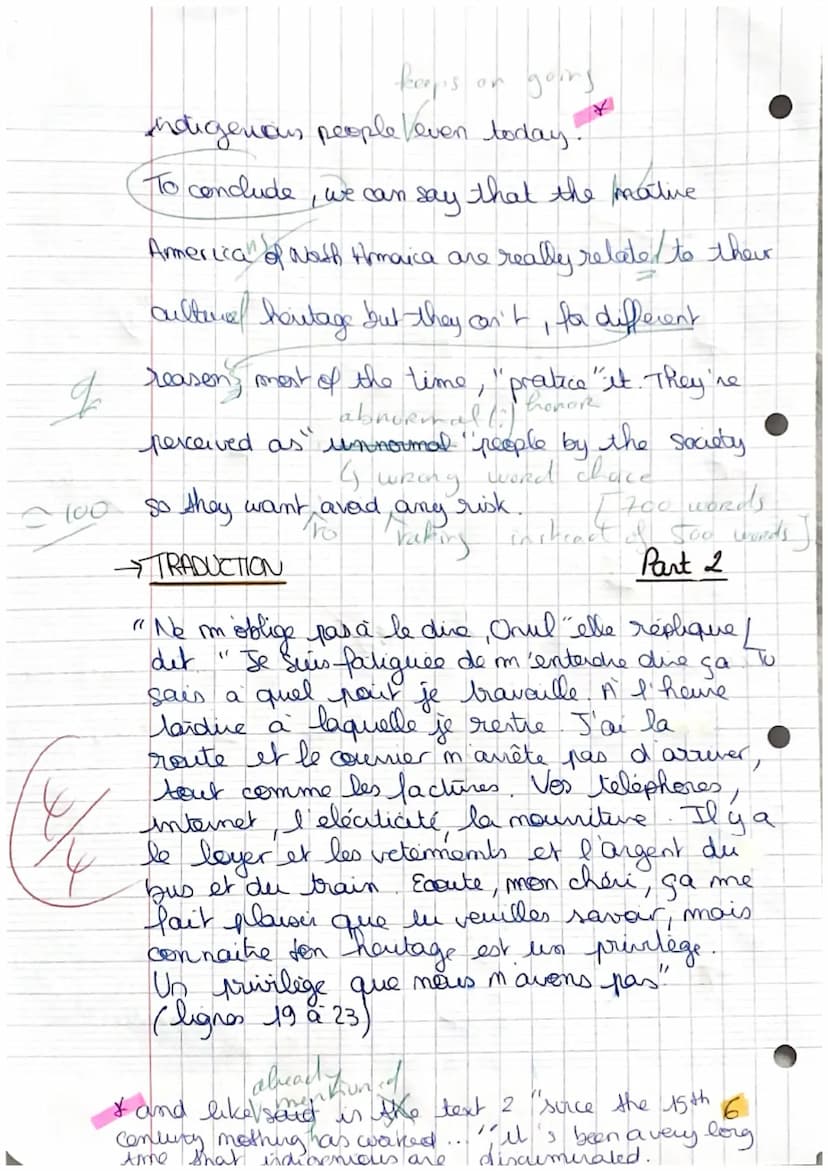 keeps on going
indigenous people even today. *
To conclude, we can say that the native
Americans of North America are really related to their
cultural heritage but they can't, for different
reasons, most of the time, "pratice" it. They're
abnormal(:) honor
perceived as "unnormal" people by the society
↳ wrong word choice
= 100 so they want avoid any risk. [700 words
to taking instead of 500 words]
→ TRADUCTION Part 2
"Ne m'oblige pas à le dire, Orvil" elle réplique
dit "Je suis fatiguée de m'entendre dire ça. Tu
sais à quel point je travaille. A l'heure
tardive à laquelle je rentre. J'ai la
route et le courrier n'arrête pas d'arriver,
tout comme les factures. Vos téléphones,
internet, l'eléctricité, la nourriture. Il y a
4/4
le loyer et les vetements et l'argent du
bus et du train. Ecoute, mon chéri, ça me
fait plaisir que tu veuilles savoir, mais
connaitre ton heritage est un privilège.
Un privilège que nous n'avons pas"
(lignes 19 à 23)
already mentioned
* and like said in the text 2 "since the 15th 6
century nothing has worked..." it's been a very long
time that indigenious are discriminated.